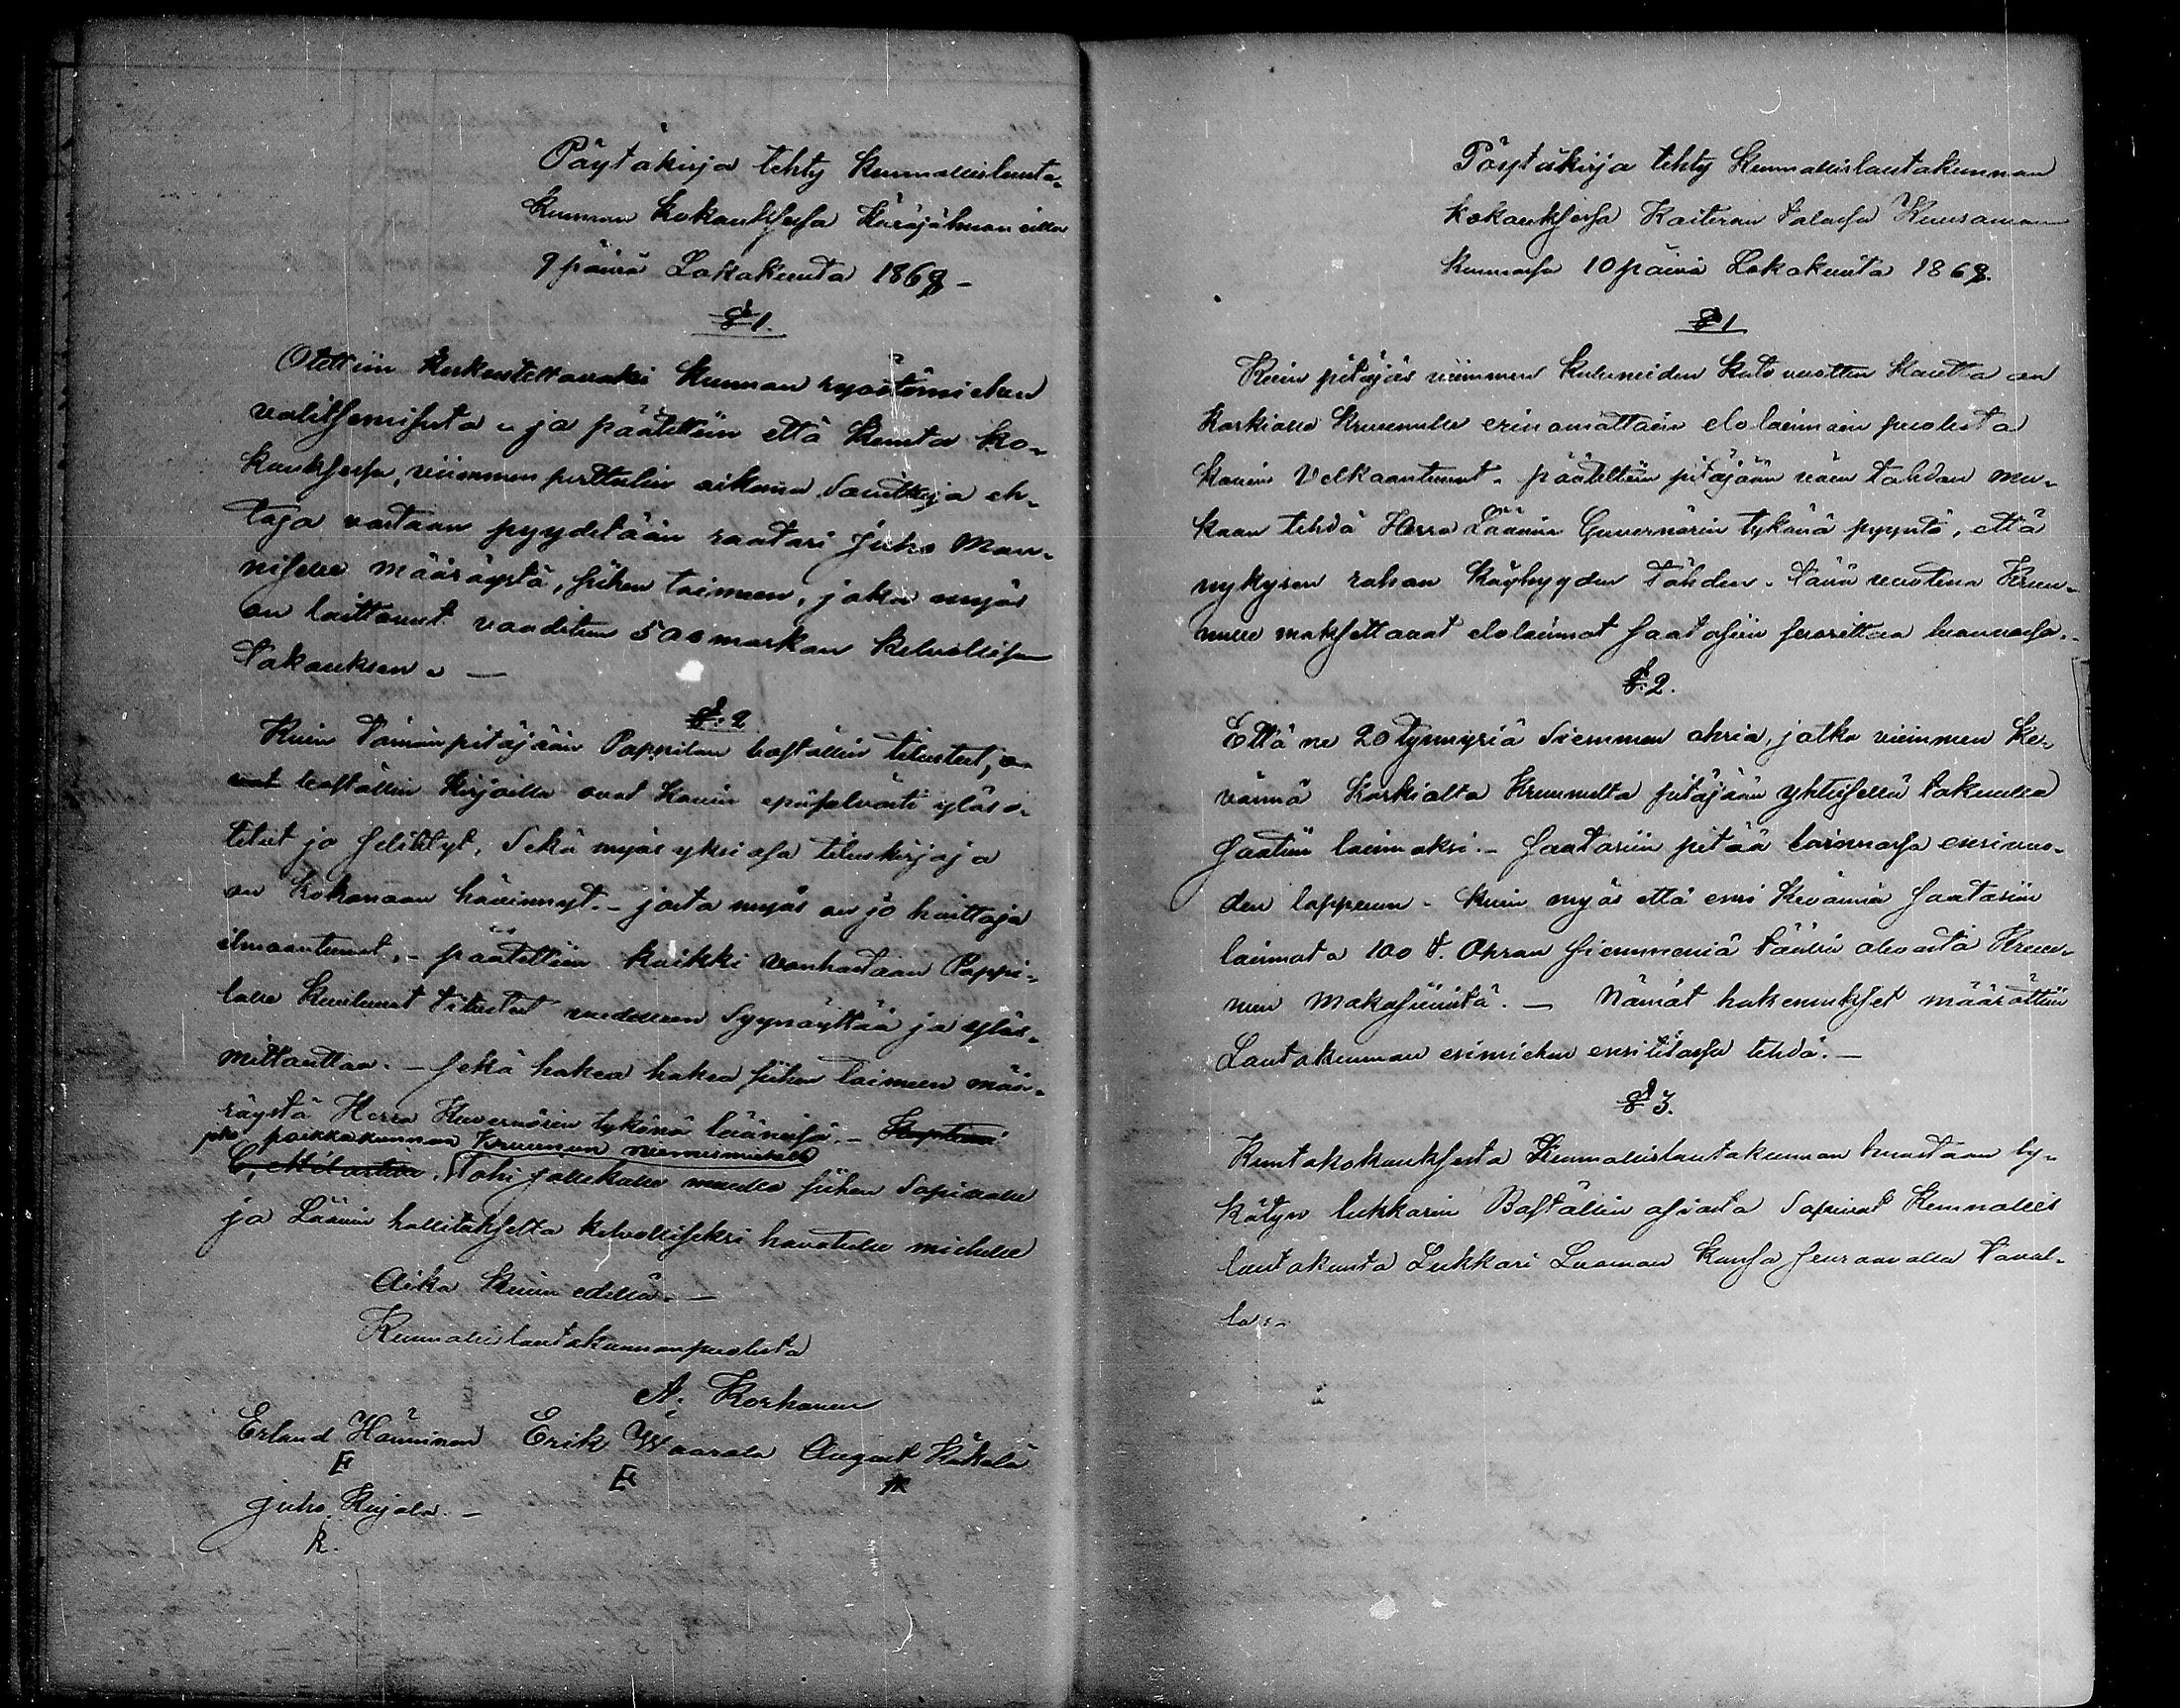 Pöytäkirja tehty Kunnallislauta-
kunnan kokouksessa Käräjähuoneilla
9 päivä Lokakuuta 1869 -
§ 1.
Otettiin keskusteltavaksi Kunnan ryöstömiehen
valitsemisesta - ja päätettiin että kunta ko-
kouksessa, viimmen perttulin aikana Saatteja eh-
toja vastaan pyydetään raatari Juho Man-
niselle määräystä, siihen toimeen, joka myös
on laittanut vaaditun 500 markan kelvollisen
takauksen. -
§: 2
Kuin Tämän pitäjään Pappilan boställin tilusteet, o-
vat boställin kirjoilla ovat kovin epäselvästi yläso-
tetut ja selitetyt, Sekä myös yksi osa tiluskirjoja
on kokonaan hävinnyt. - josta myös on jo haittoja
ilmaantunut, - päätettiin kaikki vanhastaan Pappi-
lalle kuuluvat tilustat uudelleen Syynäyttää ja ylös-
mittauttaa. - Sekä hakea hakea siihen toimeen mää-
räystä Herra Kuvernörin tykönä läänissä. - Kapteni
joko paikkakunnan Kruunun nimismiehelle
tahi jollekulle muulle siihen Sopivalle
ja Läänin hallitukselta kelvolliseksi havatulle miehelle
Aika kuin edellä. -
Kunnallislautakunnan puolesta
A. Korhonen
Erland Hänninen Erik Waarala August Käkelä
Juho Kujala. -
R.
Pöytäkirja tehty Kunnallislautakunnan
kokouksessa Kaiteran talossa Kuusamon
kunnassa 10 päivä Lokakuuta 1869.
§ 1
Kuin pitäjäs viimmen kuluneiden kato vuotten kautta on
Korkialle Kruunulle erinomattain elo lainain puolesta
kovin Velkaantunut - päätettiin pitäjään väen tahdon mu-
kaan tehdä Herra Läänin Guvernörin tykönä pyyntö, että
nykysen rahan köyhyyden Tähden - Tänä vuotena Kruu-
nulle maksettavat elolainat saatasiin suorittaa luonnossa. -
§: 2.
Että ne 20 tynnyriä Siemmen ohria, jotka viimmen Ke-
vännä Korkialta Kruunulta pitäjään yhteisellä takuulla
Saatiin lainaksi. - Saatasiin pitää lainnassa ensi vuo-
den loppuun - kuin myös että ensi Kevännä Saatasiin
lainata 100 t. Ohran Siemmeniä Täällä olevasta Kruu-
nun Makasiinistä. - Nämät hakemukset määrättiin
Lautakunnan esimiehen ensi tilassa tehdä. -
§ 3.
Kuntakokouksesta Kunnallislautakunnan huostaan ly-
kätyn lukkarin Boställin asiasta Sopivat Kunnallis
lautakunta Lukkari Luoman kansa seuraavalla taval-
la: -